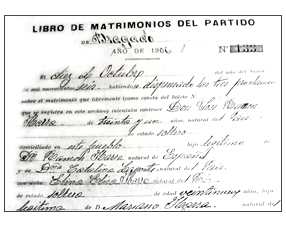 LIBRO DE MATRIMONIOS DEL PARTIDO
DE Bragado
AÑO DE 1906 Nº 133
En diez de Octubre del año del Señor
de mil novecientos seis habiéndose dispensado las tres proclamas
sobre el matrimonio que libremente (como consta del boleto N
que se registra en este archivo) intentaban contraer Don José Ramon
Ibarra de treinta y un años, natural del Pais
de estado soltero
domiciliado en este pueblo hijo legítimo de
Dn Ramon Ibarra natural de España
y Doña Catalina natural del Pais
con Elena natural del Pais
de estado soltera de edad veintinueve años, hija
legitima de D. Mariano natural del